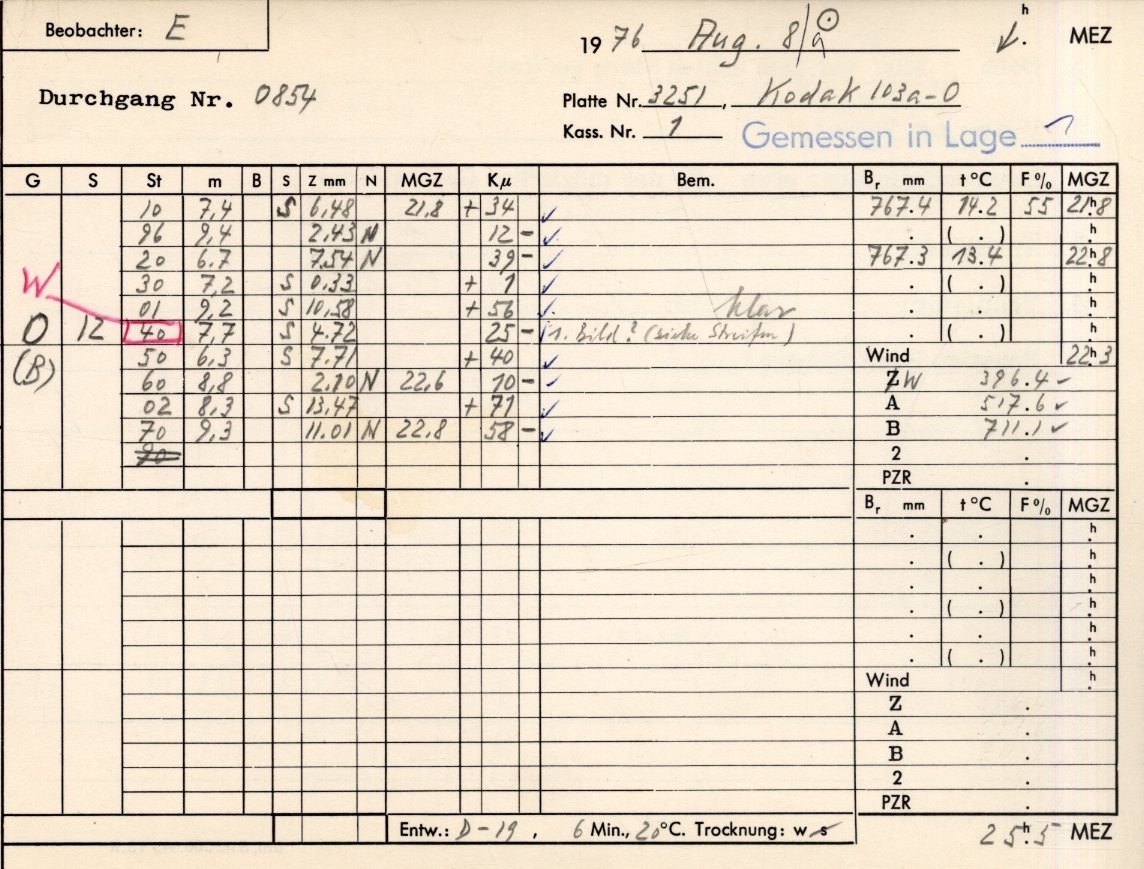 Beobachter: E
1976 Aug. 8/9 ☉ h MEZ
Durchgang Nr. 0854
Platte Nr. 3251, Kodak 103a-O
Kass. Nr. 1 Gemessen in Lage 1
G S St m B S Z mm N MGZ Kμ Bem. Br mm t °C F % MGZ
10 7,4 S 6,48 21,8 + 34 ✓ 767.4 14.2 55 21h.8
96 9,4 2,43 N 12 - ✓ . ( . ) h.
20 6.7 7.54 N 39 - ✓ 767.3 13.4 22h.8
W 30 7,2 S 0,33 + 1 ✓ . ( . ) h.
01 9,2 S 10,58 + 56 ✓ klar . . h.
O 12 40 7,7 S 4.72 25 - (1. Bild? (siehe Streifen) . ( . ) h.
(B) 50 6,3 S 7.71 + 40 ✓ Wind 22h.3
60 8,8 2.10 N 22,6 10 - ✓ Z W 396.4 ✓
02 8,3 S 13,47 + 71 ✓ A 517.6 ✓
70 9,3 11.01 N 22,8 58 - ✓ B 711.1 ✓
2 .
PZR .
Br mm t °C F % MGZ
. . h.
. ( . ) h.
. . h.
. ( . ) h.
. . h.
. ( . ) h.
Wind h.
Z .
A .
B .
2 .
PZR .
Entw.: D-19, 6 Min., 20°C. Trocknung: w s 25h.5 MEZ